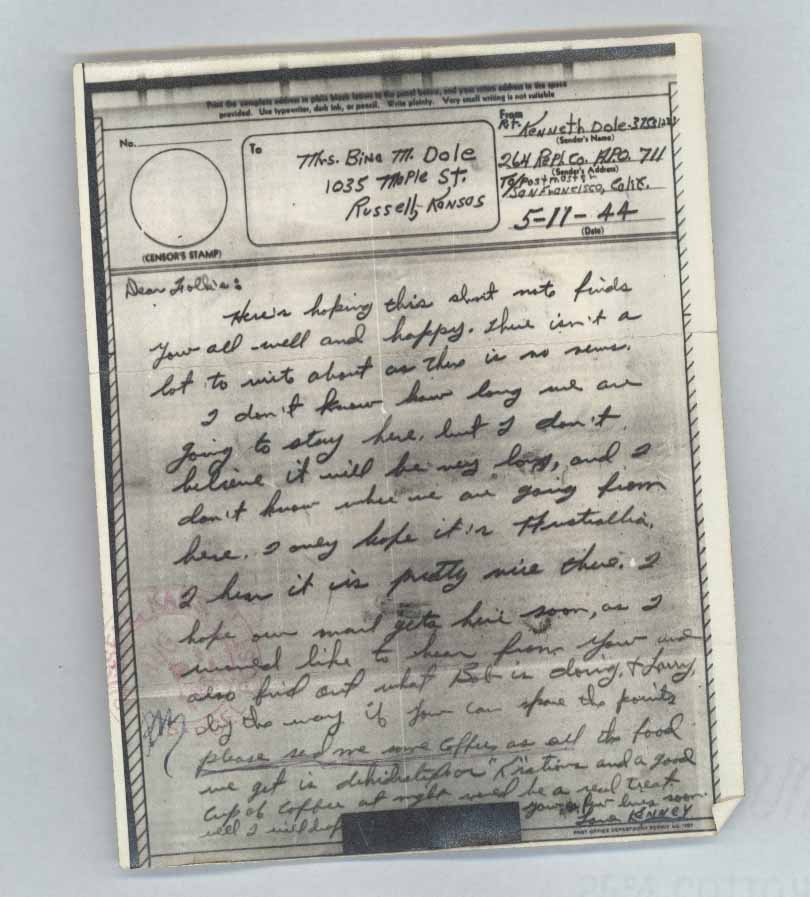 Print the complete address in plain block letters in the panel below, and your return address in the space
provided. Use typewriter, dark ink, or pencil. Write plainly. Very small writing is not suitable
No.
(CENSOR'S STAMP)
To
Mrs. Bina M. Dole
1035 Maple St.
Russell, Kansas
From
Pvt. Kenneth Dole
(Sender's Name)
26th Repl Co. A.P.O. 711
(Sender's Address)
℅ Postmaster
San Francisco, Calif.
5-11-44
(Date)
Dear Folkes:
Here's hoping this short note finds
you all well and happy. There isn't a
lot to write about as there is no news.
I don't know how long we are
going to stay here, but I don't
believe it will be very long, and I
don't know where we are going from
here. I only hope it is Austrailia,
I hear it is pretty nice there. I
hope our mail gets here soon, as I
would like to hear from you and
also find out what Bob is doing, + Larry,
by the way if you can spare the points
please send me some Coffee, as all the food
we get is dehidrated or "K" rations and a good
cup of Coffee at night would be a real treat
well I will drop you a few lines soon.
Love Kenney
POST OFFICE DEPARTMENT PERMIT NO.